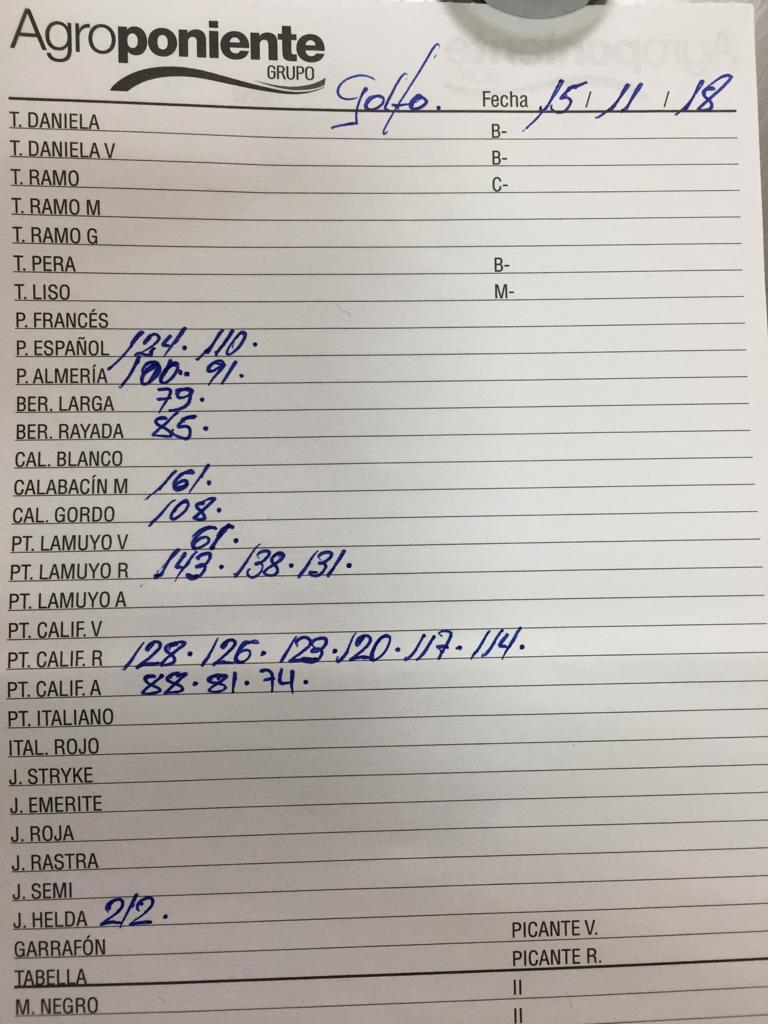 Agroponiente
GRUPO
Golfo. Fecha 15 / 11 / 18
T. DANIELA B-
T. DANIELA V B-
T. RAMO C-
T. RAMO M
T. RAMO G
T. PERA B-
T. LISO M-
P. FRANCÉS
P. ESPAÑOL 124. 110.
P. ALMERÍA 100.. 91.
BER. LARGA 79.
BER. RAYADA 85.
CAL. BLANCO
CALABACÍN M 161.
CAL. GORDO 108.
PT. LAMUYO V 61.
PT. LAMUYO R 143. 138. 131.
PT. LAMUYO A
PT. CALIF. V
PT. CALIF. R 128. 126. 123. 120. 117. 114.
PT. CALIF. A 88. 81. 74.
PT. ITALIANO
ITAL. ROJO
J. STRYKE
J. EMERITE
J. ROJA
J. RASTRA
J. SEMI
J. HELDA 212.
GARRAFÓN PICANTE V.
TABELLA PICANTE R.
M. NEGRO II
II